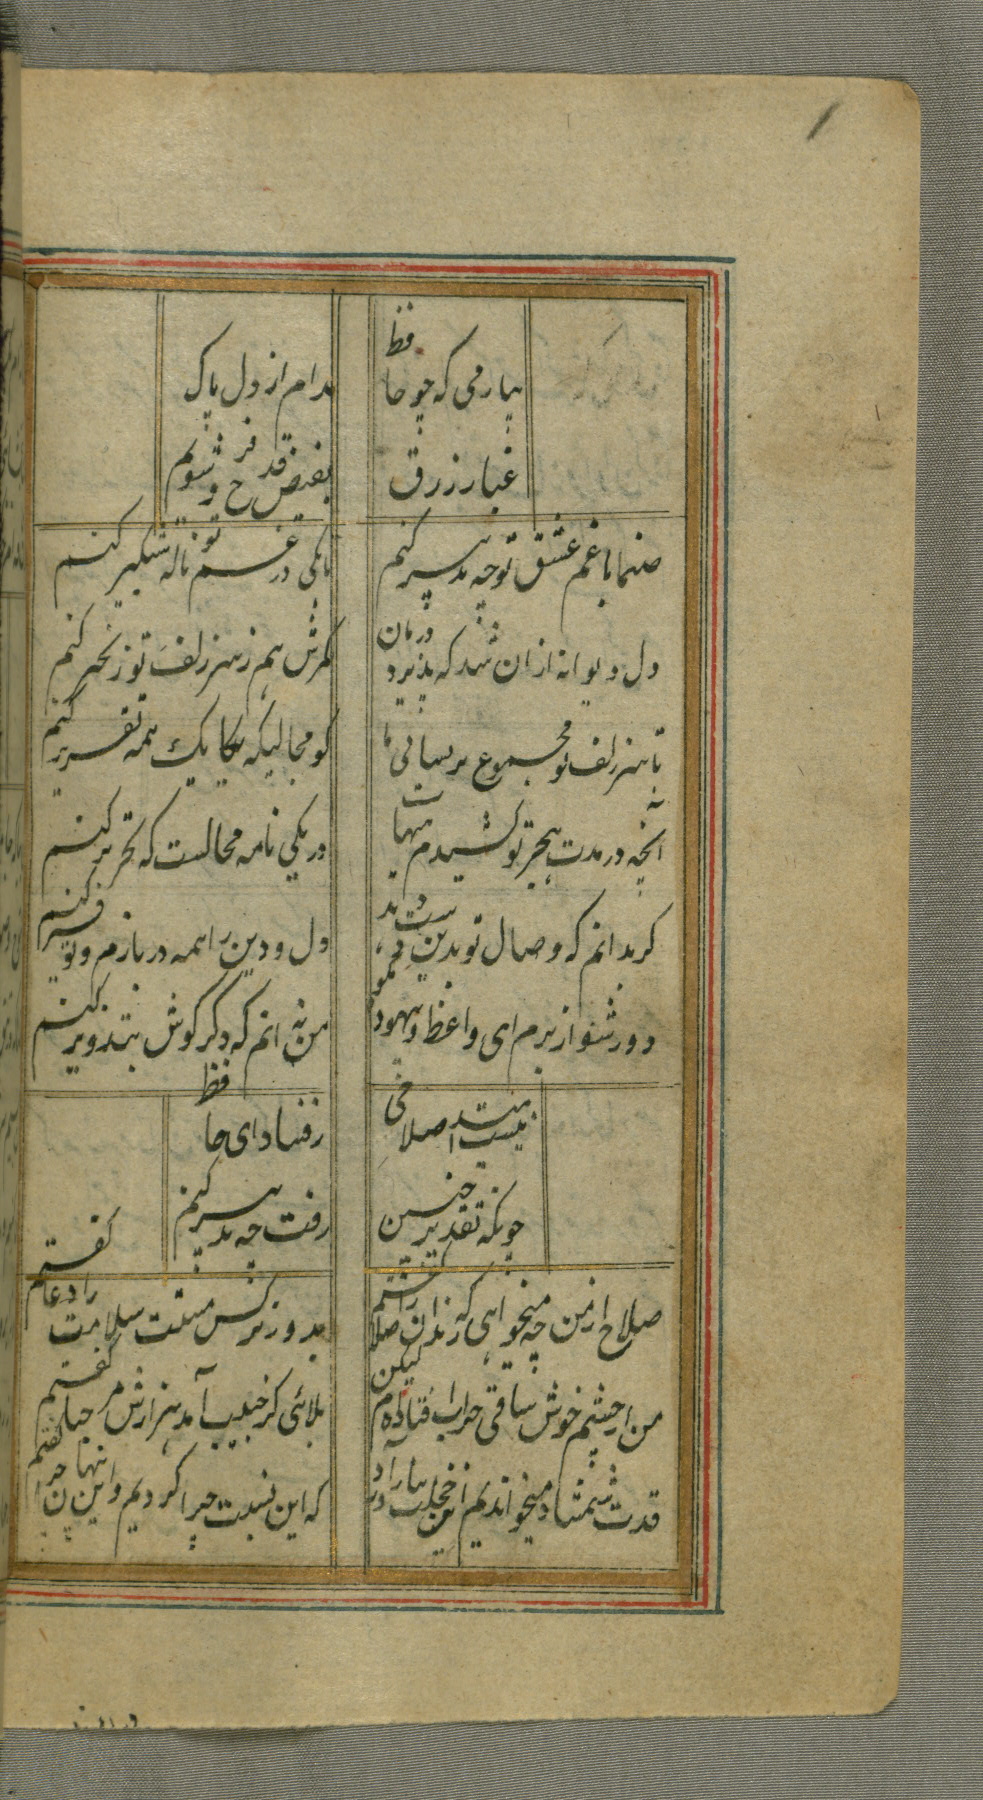 بیار می که چو حافظ مدام از دل پاک
غبار زرق بفیض قدح فرو شویم
صنما با غم عشق تو چه تدبیر کنم تا بکی در غم تو ناله شبگیر کنم
دل دیوانه ازان شد که پذیرد درمان مکرش هم ز سر زلف تو زنجیر کنم
با سر زلف تو مجموع پریشانی ما کو مجالیکه یکایک همه تقریر کنم
انچه در مدت هجر تو کشیدم هیهات در یکی نامه محالست که تحریر کنم
کر بدانم که وصال تو بدین دست دهد دل و دین را همه در بازم و توفیر کنم
دور شو از برم ای واعظ و بیهوده مکوی من نه انم که دکر کوش بتزویر کنم
نیست امید صلاحی ز فساد ای حافظ
چونکه تقدیر چنین رفت چه تدبیر کنم
صلاح از من چه میخواهی که رندان را صلا کفتم بدور نرکس مستت سلامت را دعا کفتم
من از چشم خوش ساقی خراب افتاده‌ام لیکن بلائی کز حبیب آمد هزارش مرحبا کفتم
قدت شمشاد میخواندیم از خجلت ببار آورد که این نسبت چرا کردیم و این بهتان چرا کفتم